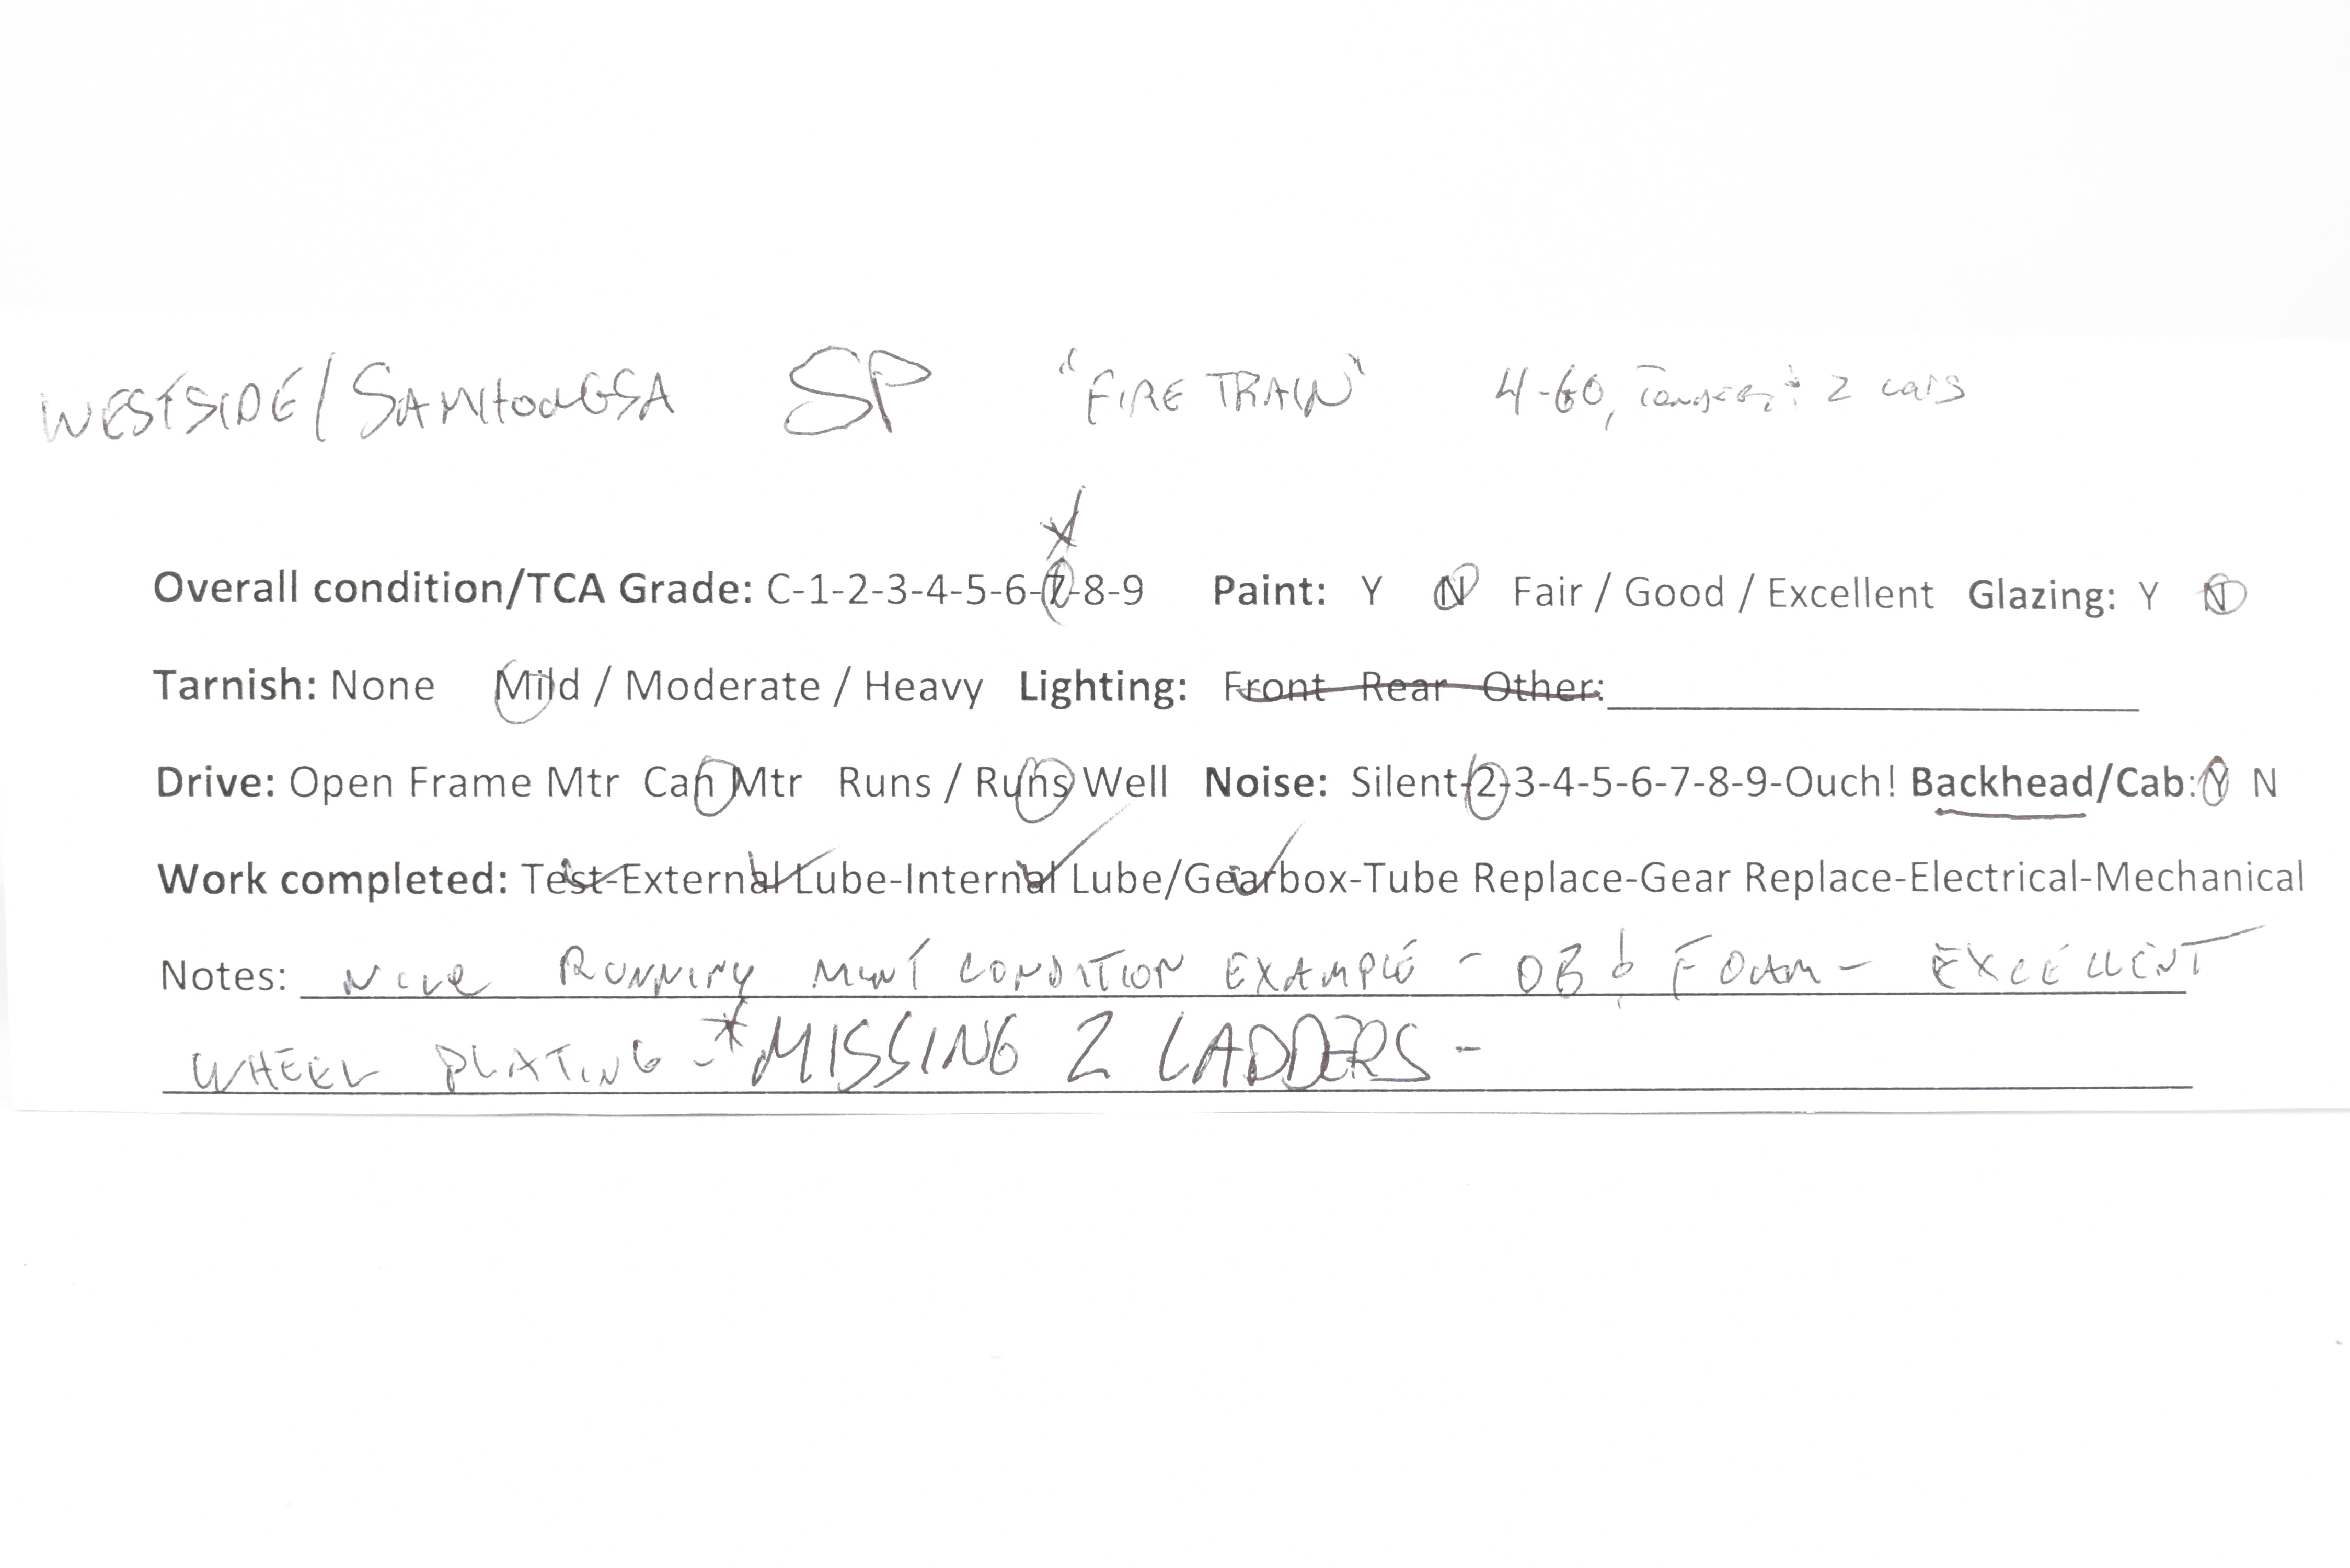 WESTSIDE/SAMHONGSA SP "FIRE TRAIN" 4-60, & 2 cars
Overall condition/TCA Grade: C-1-2-3-4-5-6-7-8-9 Paint: Y N Fair / Good / Excellent Glazing: Y N
Tarnish: None Mild / Moderate / Heavy Lighting: Front Rear Other:
Drive: Open Frame Mtr Can Mtr Runs / Runs Well Noise: Silent-2-3-4-5-6-7-8-9-Ouch! Backhead/Cab: Y N
Work completed: Test-External Lube-Internal Lube/Gearbox-Tube Replace-Gear Replace-Electrical-Mechanical
Notes: NICE RUNNING MINT CONDITION EXAMPLE - OB & FOAM - EXCELLENT
WHEEL PLATING - *MISSING 2 LADDERS -